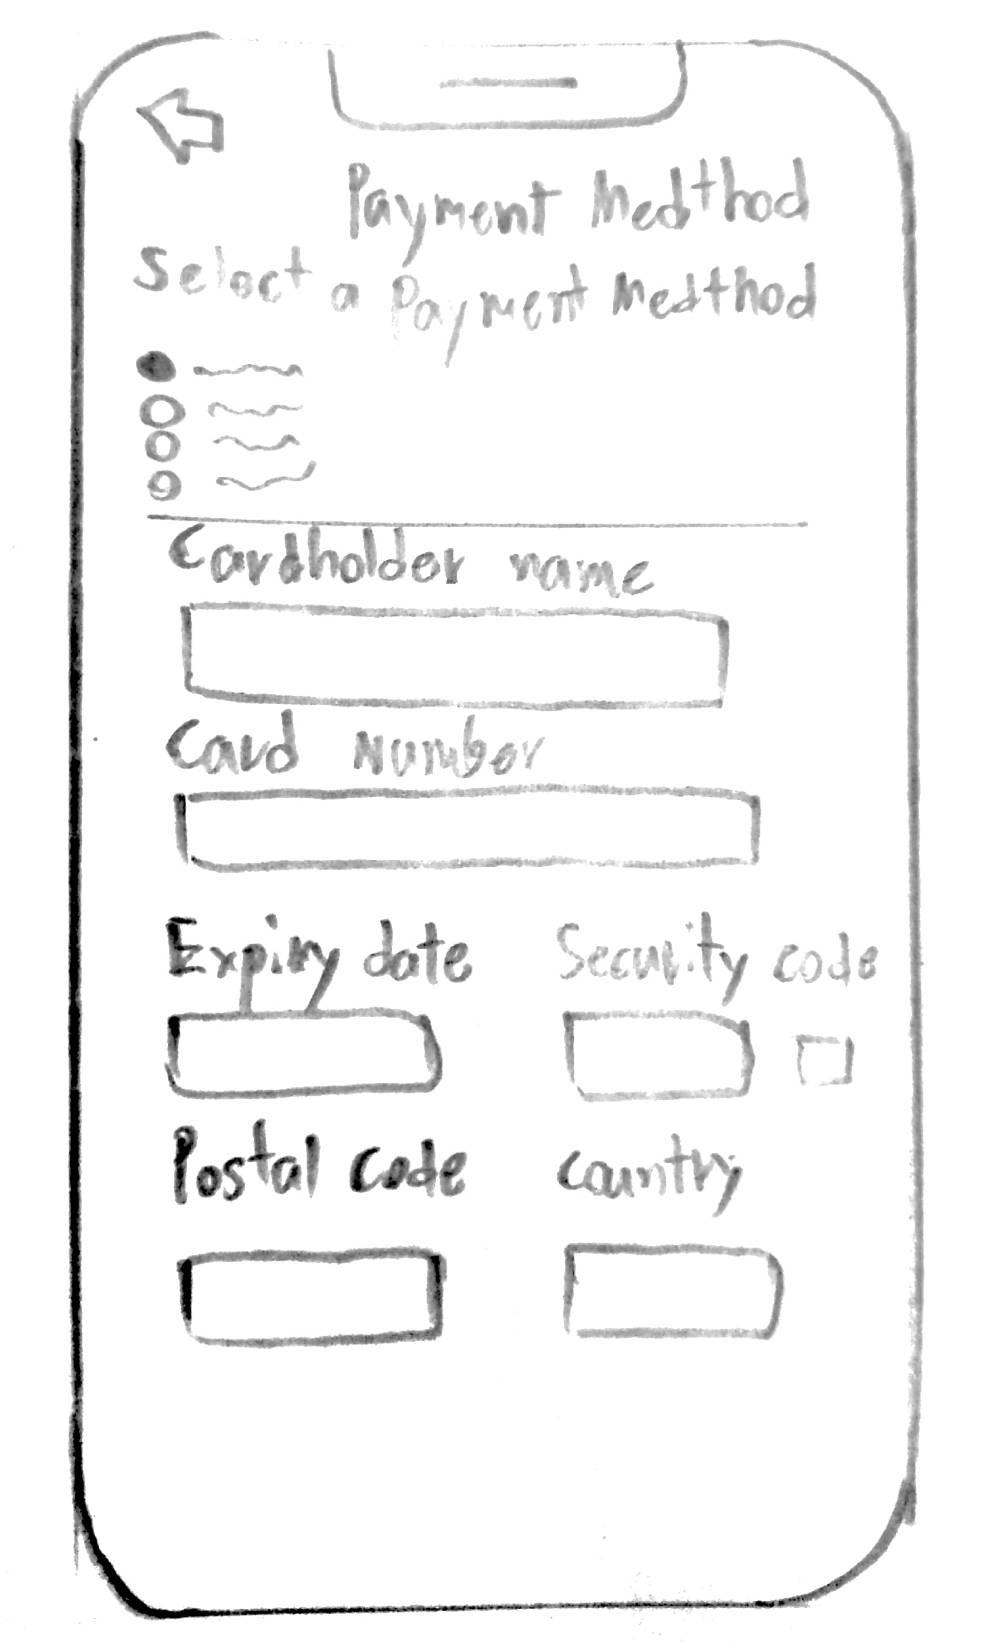 Payment Medthod
Select a Payment Medthod
Cardholder name
Card Number
Expiry date
Security code
Postal Code
country